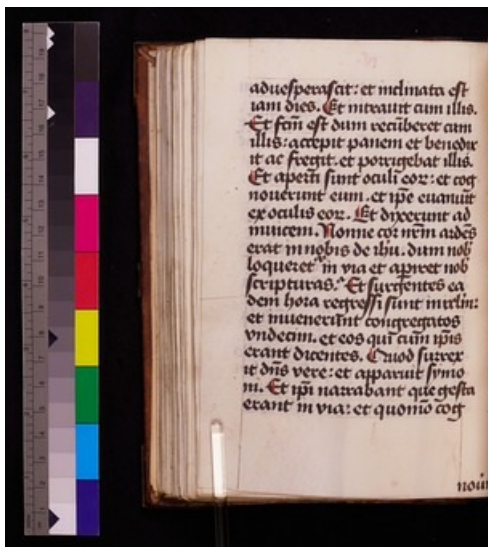 aduesperascit: et inclinata est
iam dies. Et intrauit cum illis.
Et fcm̄ est dum recūberet cum
illis: accepit panem et benedix
it ac fregit. et porrigebat illis.
Et aperti sunt oculi eor: et cog
nouerunt eum. et ip̄e euanuit
ex oculis eor. Et dixerunt ad
inuicem. Nonne cor nr̄m ardēs
erat in nobis de ihu. dum nob
loqueret in via et apiret nob
scripturas: Et surgentes ea
dem hora regressi sunt in irlm:
et inuenerūnt congregatos
vndecim. et eos qui cum ip̄is
erant dicentes. Quod surrex
it dn̄s vere: et apparuit symo
ni. Et ip̄i narrabant que gesta
erant in via: et quomō cog